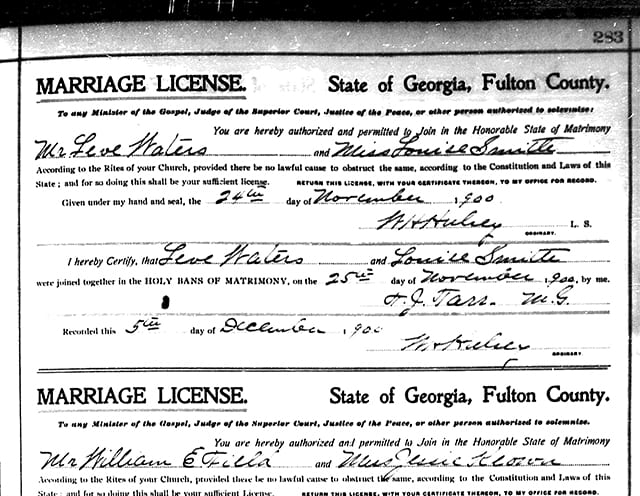 283
MARRIAGE LICENSE. State of Georgia, Fulton County.
To any Minister of the Gospel, Judge of the Superior Court, Justice of the Peace, or other person authorized to solemnize:
You are hereby authorized and permitted to Join in the Honorable State of Matrimony
Mr Leve Waters and Miss Louise Smitte
According to the Rites of your Church, provided there be no lawful cause to obstruct the same, according to the Constitution and Laws of this
State; and for so doing this shall be your sufficient license. RETURN THIS LICENSE, WITH YOUR CERTIFICATE THEREON, TO MY OFFICE FOR RECORD.
Given under my hand and seal, the 24th day of November 1900
W H Hulsey L. S.
ORDINARY.
I hereby Certify, that Leve Waters and Louise Smitte
were joined together in the HOLY BANS OF MATRIMONY, on the 25th day of November 1900, by me.
J. Tarr. M. G.
Recorded this 5th day of December 1900
W H Hulsey
ORDINARY.
MARRIAGE LICENSE. State of Georgia, Fulton County.
To any Minister of the Gospel, Judge of the Superior Court, Justice of the Peace, or other person authorized to solemnize.
You are hereby authorized and permitted to Join in the Honorable State of Matrimony
Mr William E Field and Miss
According to the Rites of your Church, provided there be no lawful cause to obstruct the same, according to the Constitution and Laws of this
State; and for so doing this shall be your sufficient license. RETURN THIS LICENSE, WITH YOUR CERTIFICATE THEREON, TO MY OFFICE FOR RECORD.